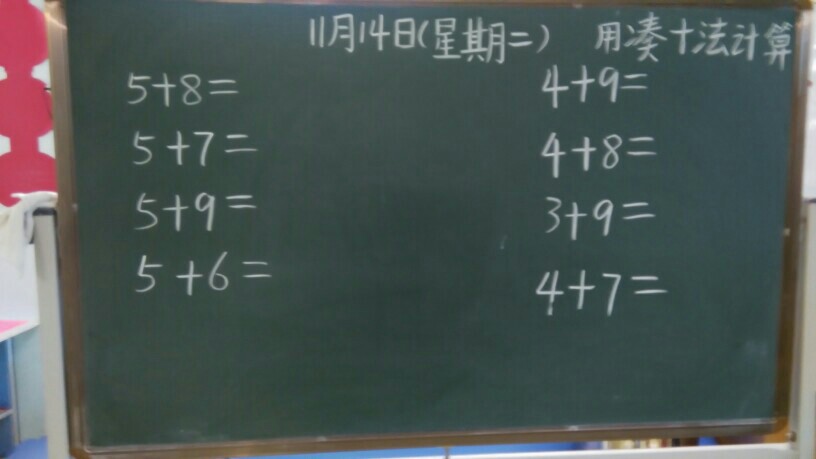 11月14日(星期二) 用凑十法计算
5+8= 4+9=
5+7= 4+8=
5+9= 3+9=
5+6= 4+7=